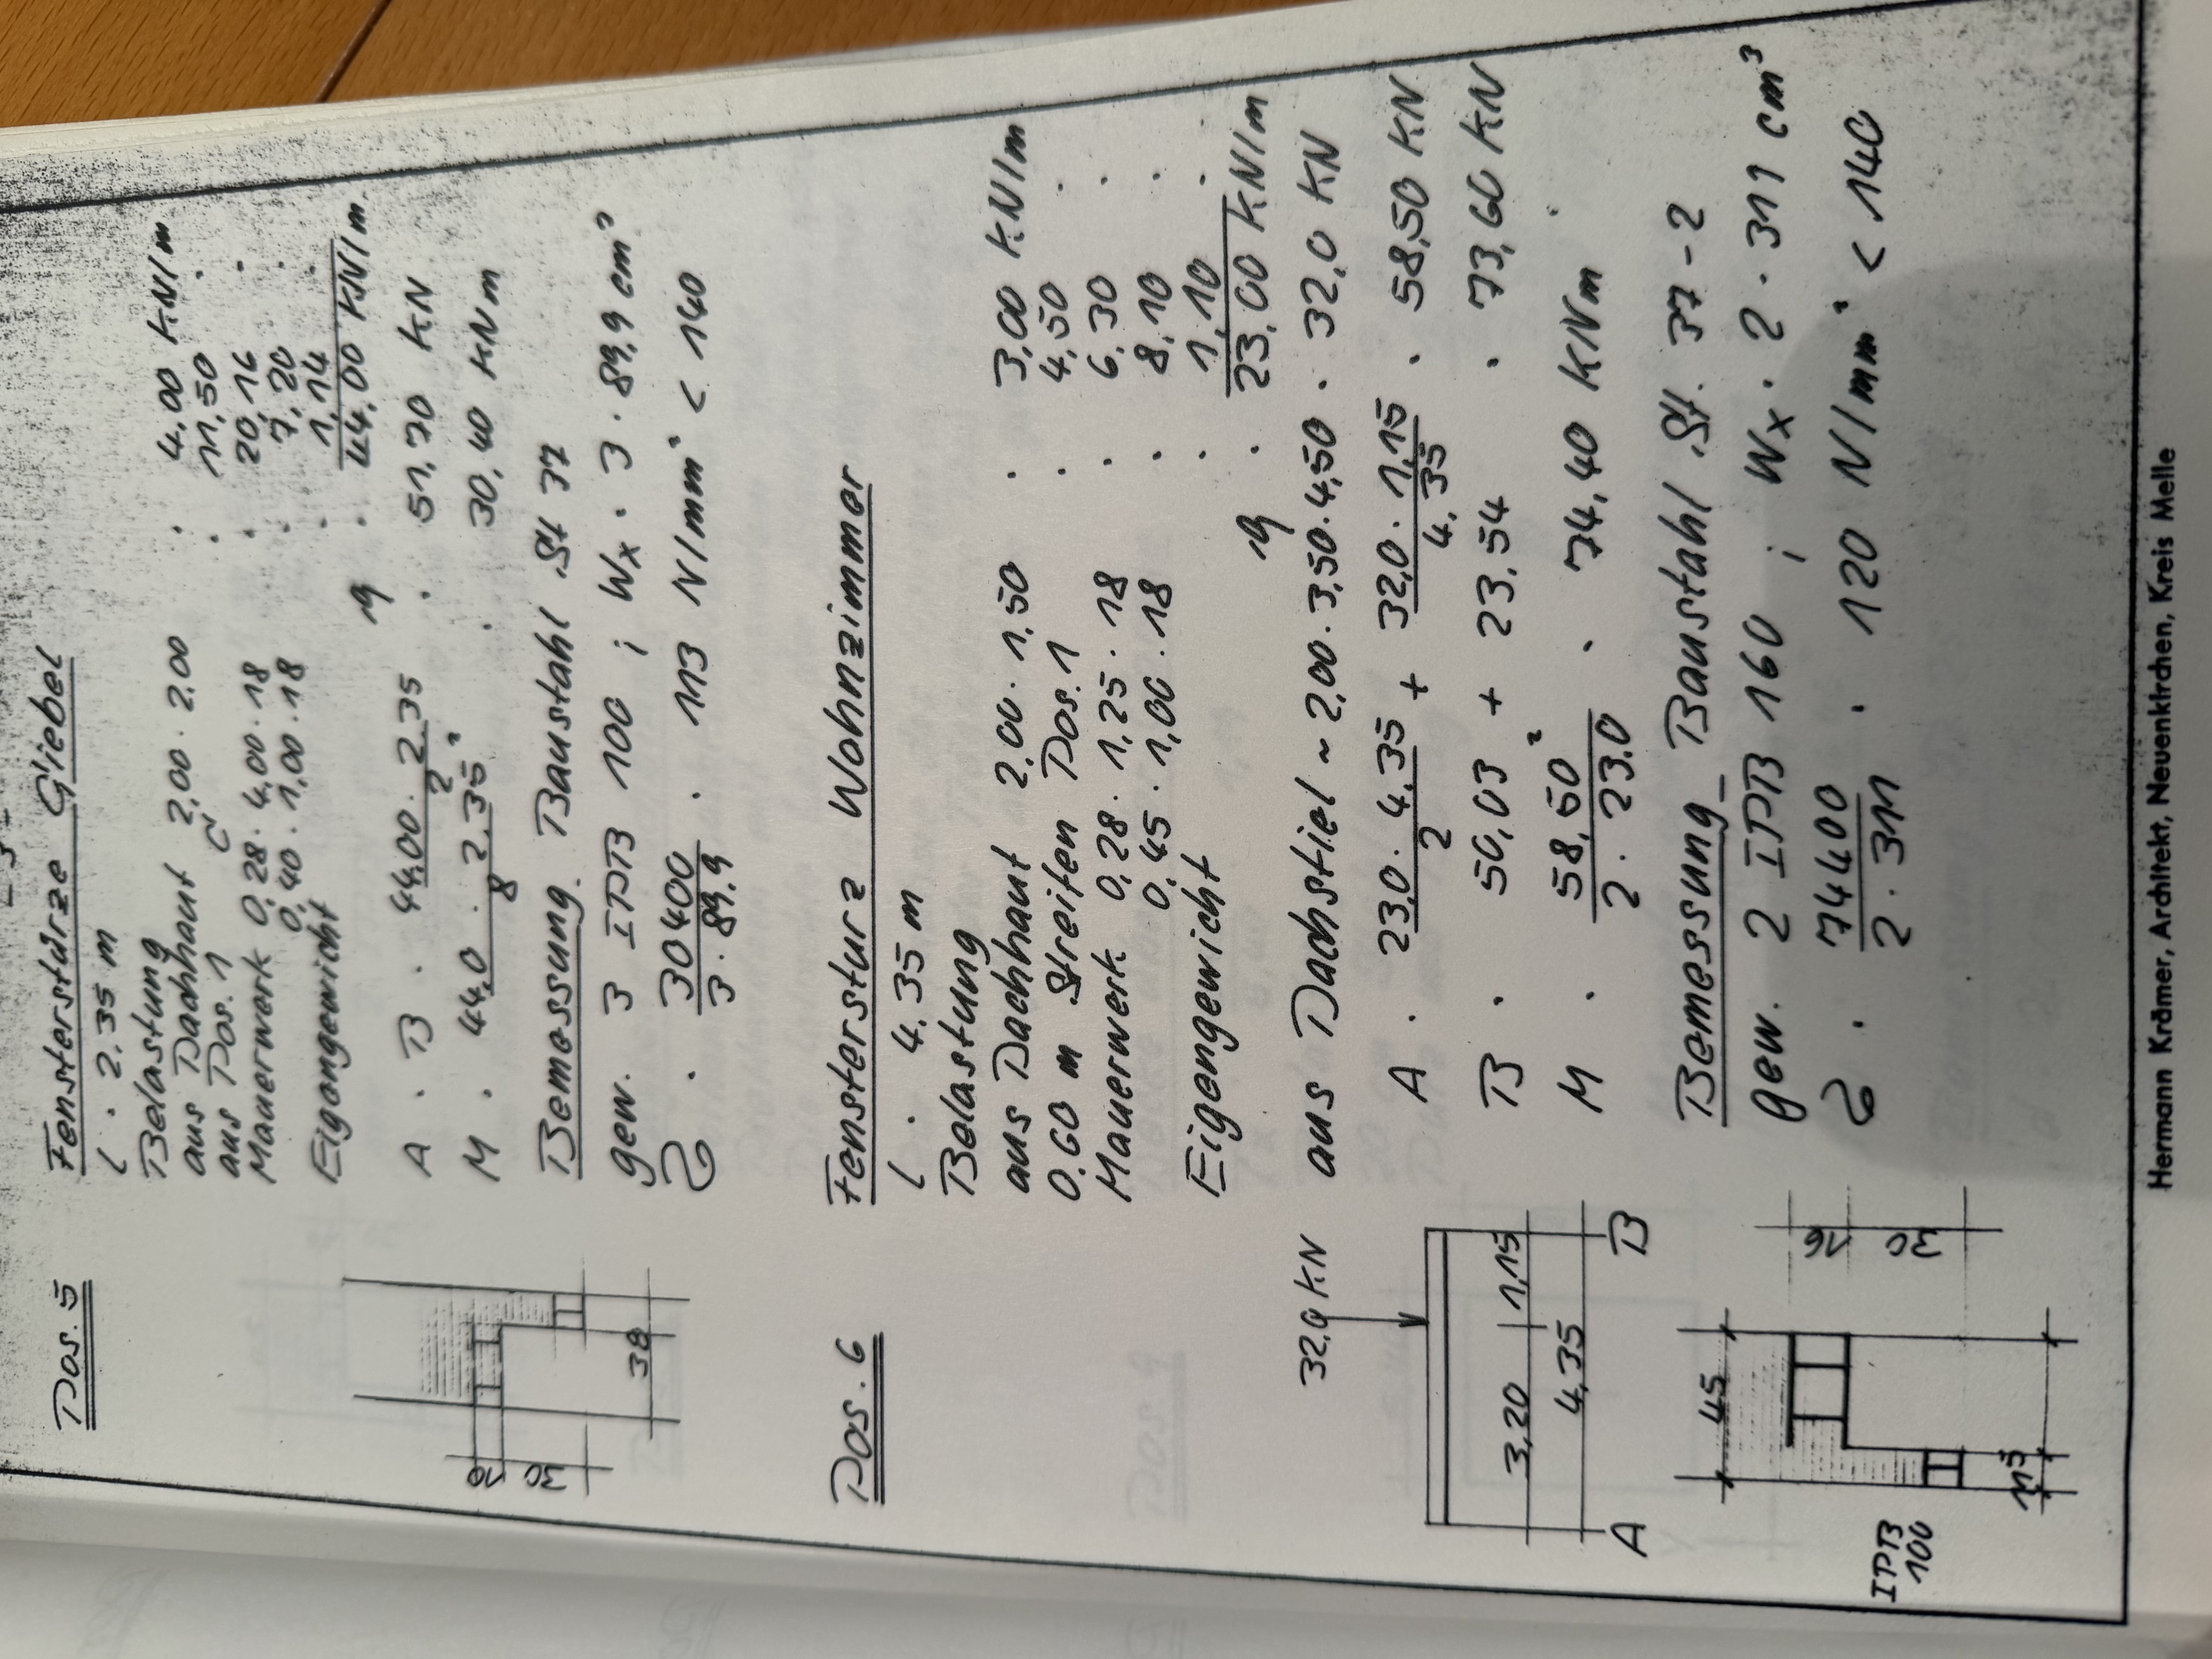 Pos. 5
Fensterstürze Giebel
l = 2.35 m
Belastung
aus Dachhaut 2,00 · 2,00 = 4,00 KN/m
aus Pos. 1 = 11,50 "
Mauerwerk 0,28 · 4,00 · 18 = 20,16 "
0,40 · 1,00 · 18 = 7,20 "
Eigengewicht = 1,14 "
q = 44,00 KN/m
A = B = 44,00 · 2,35 / 2 = 51,70 KN
M = 44,0 · 2,35² / 8 = 30,40 KNm
Bemessung Baustahl St 37
gew. 3 IPB 100 ; Wx = 3 · 89,9 cm³
σ = 30400 / 3 · 89,9 = 113 N/mm² < 140
16
30
38
Pos. 6
Fenstersturz Wohnzimmer
l = 4,35 m
Belastung
aus Dachhaut 2,00 · 1,50 = 3,00 KN/m
0,60 m Streifen Pos. 1 = 4,50 "
Mauerwerk 0,28 · 1,25 · 18 = 6,30 "
0,45 · 1,00 · 18 = 8,10 "
Eigengewicht = 1,10 "
q = 23,00 KN/m
aus Dachstiel ~ 2,00 · 3,50 · 4,50 = 32,0 KN
32,0 KN
A = 23,0 · 4,35 / 2 + 32,0 · 1,15 / 4,35 = 58,50 KN
B = 50,03 + 23,54 = 73,60 KN
M = 58,50² / 2 · 23,0 = 74,40 KNm
3,20 1,15
4,35
A B
Bemessung Baustahl St. 37-2
gew. 2 IPB 160 ; Wx = 2 · 311 cm³
σ = 74400 / 2 · 311 = 120 N/mm² < 140
45
16
30
IPB
100
11⁵
Hermann Krämer, Architekt, Neuenkirchen, Kreis Melle